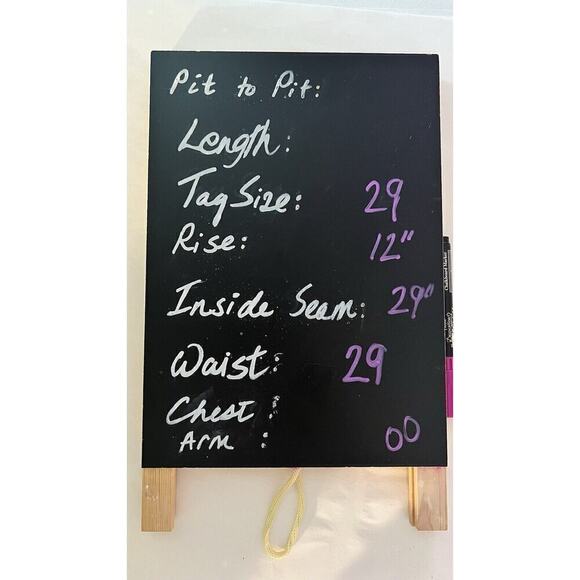 Pit to Pit:
Length:
Tag Size: 29
Rise: 12"
Inside Seam: 29"
Waist: 29
Chest:
Arm : 00
Chalkboard Marker